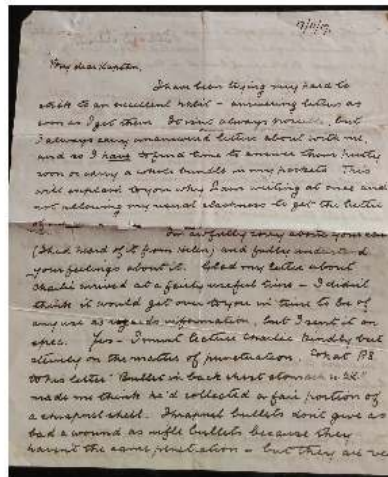 My dear Kapten,
I have been trying very hard to
stick to an excellent habit - answering letters as
soon as I get them. It isn't always possible, but
I always carry unanswered letters about with me,
and so I have to find time to answer them pretty
soon or carry a whole bundle in my pockets. This
will explain to you why I am writing at once and
not allowing my usual slackness to get the better
of
I'm awfully sorry about your
(I had heard of it from Helen) and fully understand
your feelings about it. Glad my letter about
Charlie arrived at a fairly useful time - I didn't
think it would get over to you in time to be of
any use as regards information, but I sent it on
spec. Yes - I must lecture Charlie kindly but
on the matter of punctuation. That P.S.
to his letter "Bullet in back chest stomach
made me think he'd collected a fair portion of
a shrapnel shell. Shrapnel bullets don't give as
bad a wound as rifle bullets because they
haven't the same penetration - but they are